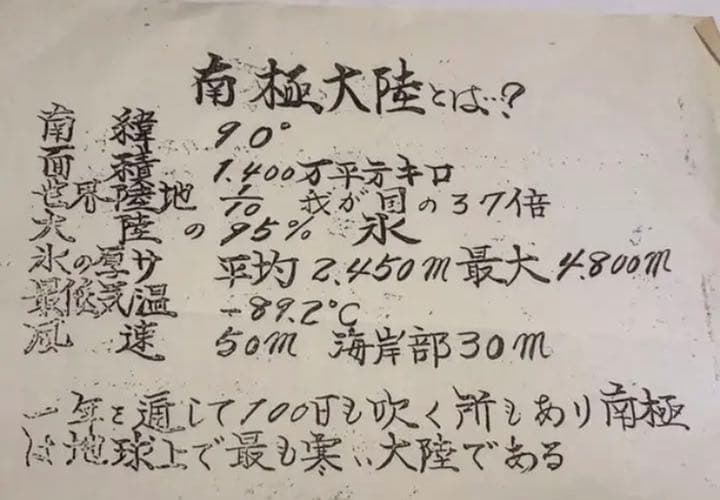 南極大陸とは…?
南緯 90°
面積 1.400万平方キロ
世界陸地 1/10 我が国の37倍
大陸の95% 氷
氷の厚サ 平均2.450m 最大4.800m
最低気温 -89.2°C
風速 50m 海岸部30m
一年を通して100日も吹く所もあり南極
は地球上で最も寒い大陸である